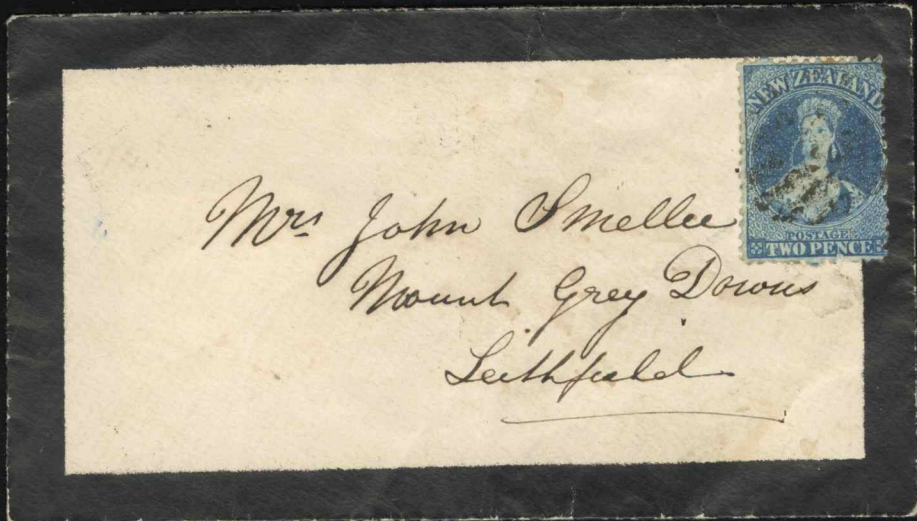 NEW ZEALAND
POSTAGE
TWO PENCE
Mrs John Smellie
Mount Grey Downs
Leithfield